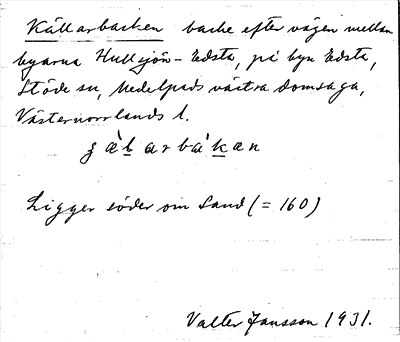 Källarbacken backe efter vägen mellan
byarna Hullsjön - Edsta, på byn Edsta,
Stöde sn, Medelpads västra domsaga,
Västernorrlands l.
Ligger söder om Sand (= 160)
Valter Jansson 1931.